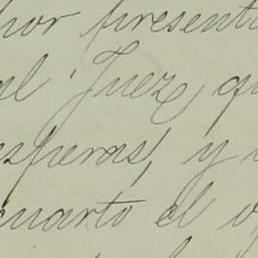 por present
al Juez, qu
esperas, y
cuarto el